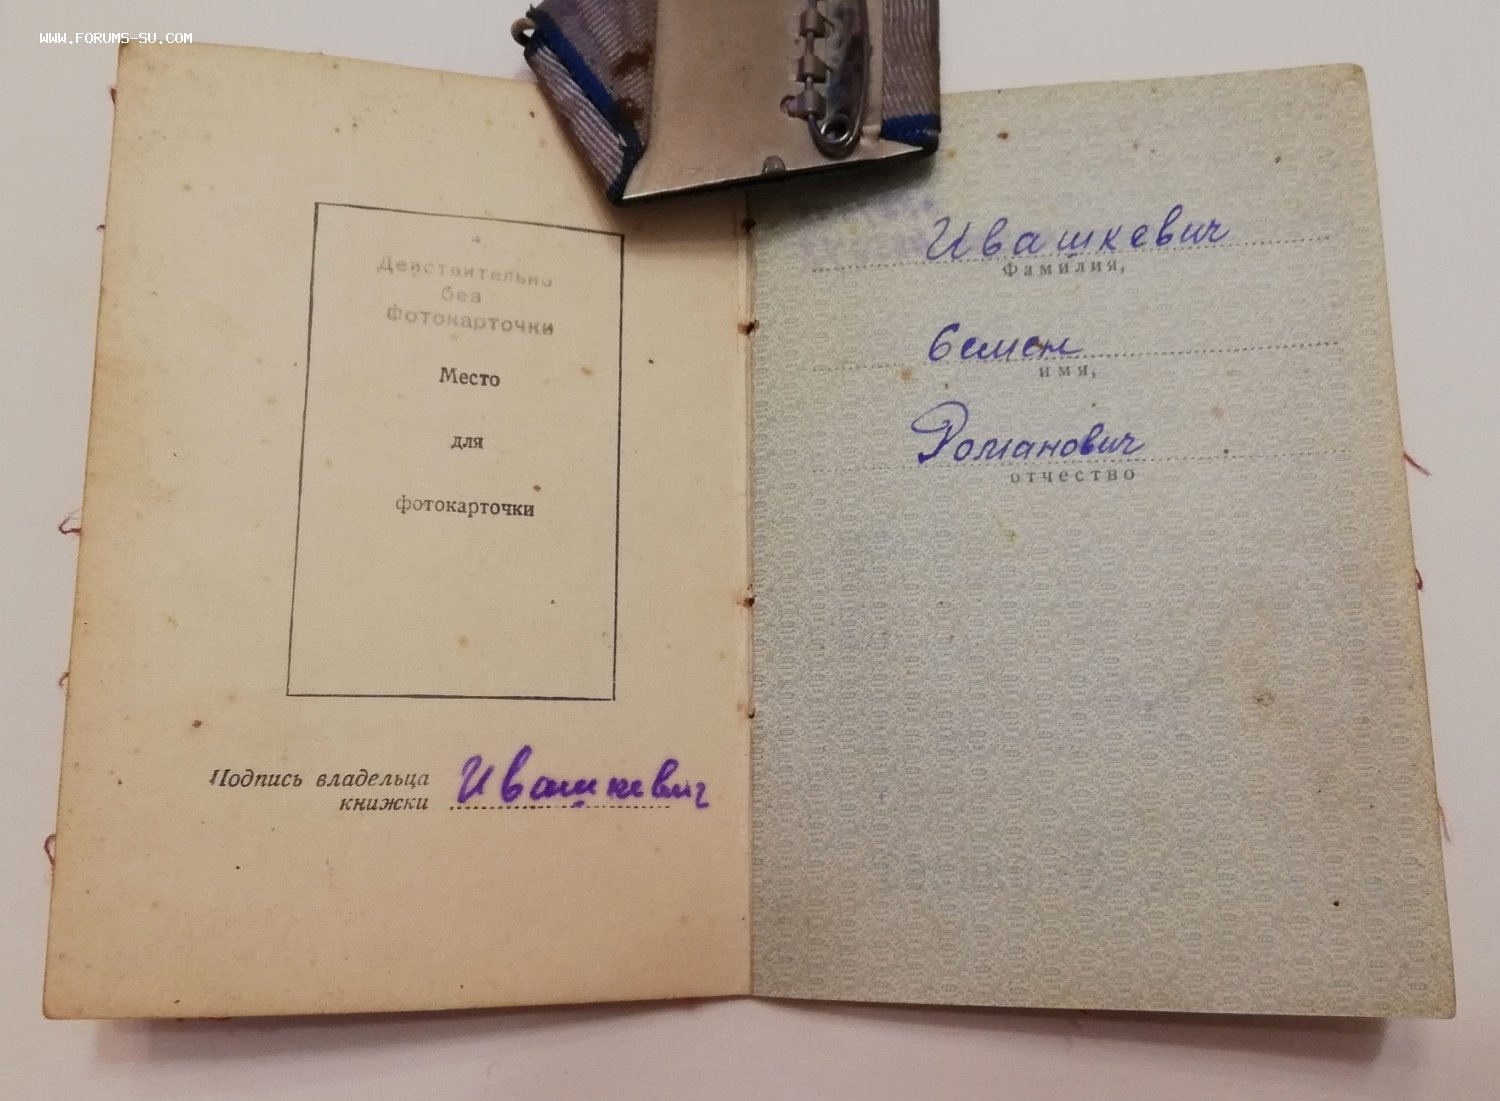 WWW.FORUMS-SU.COM
Действительно
без
фотокарточки
Место
для
фотокарточки
Подпись владельца
книжки
Ивашкевич
Ивашкевич
Фамилия,
Семен
имя,
Романович
отчество